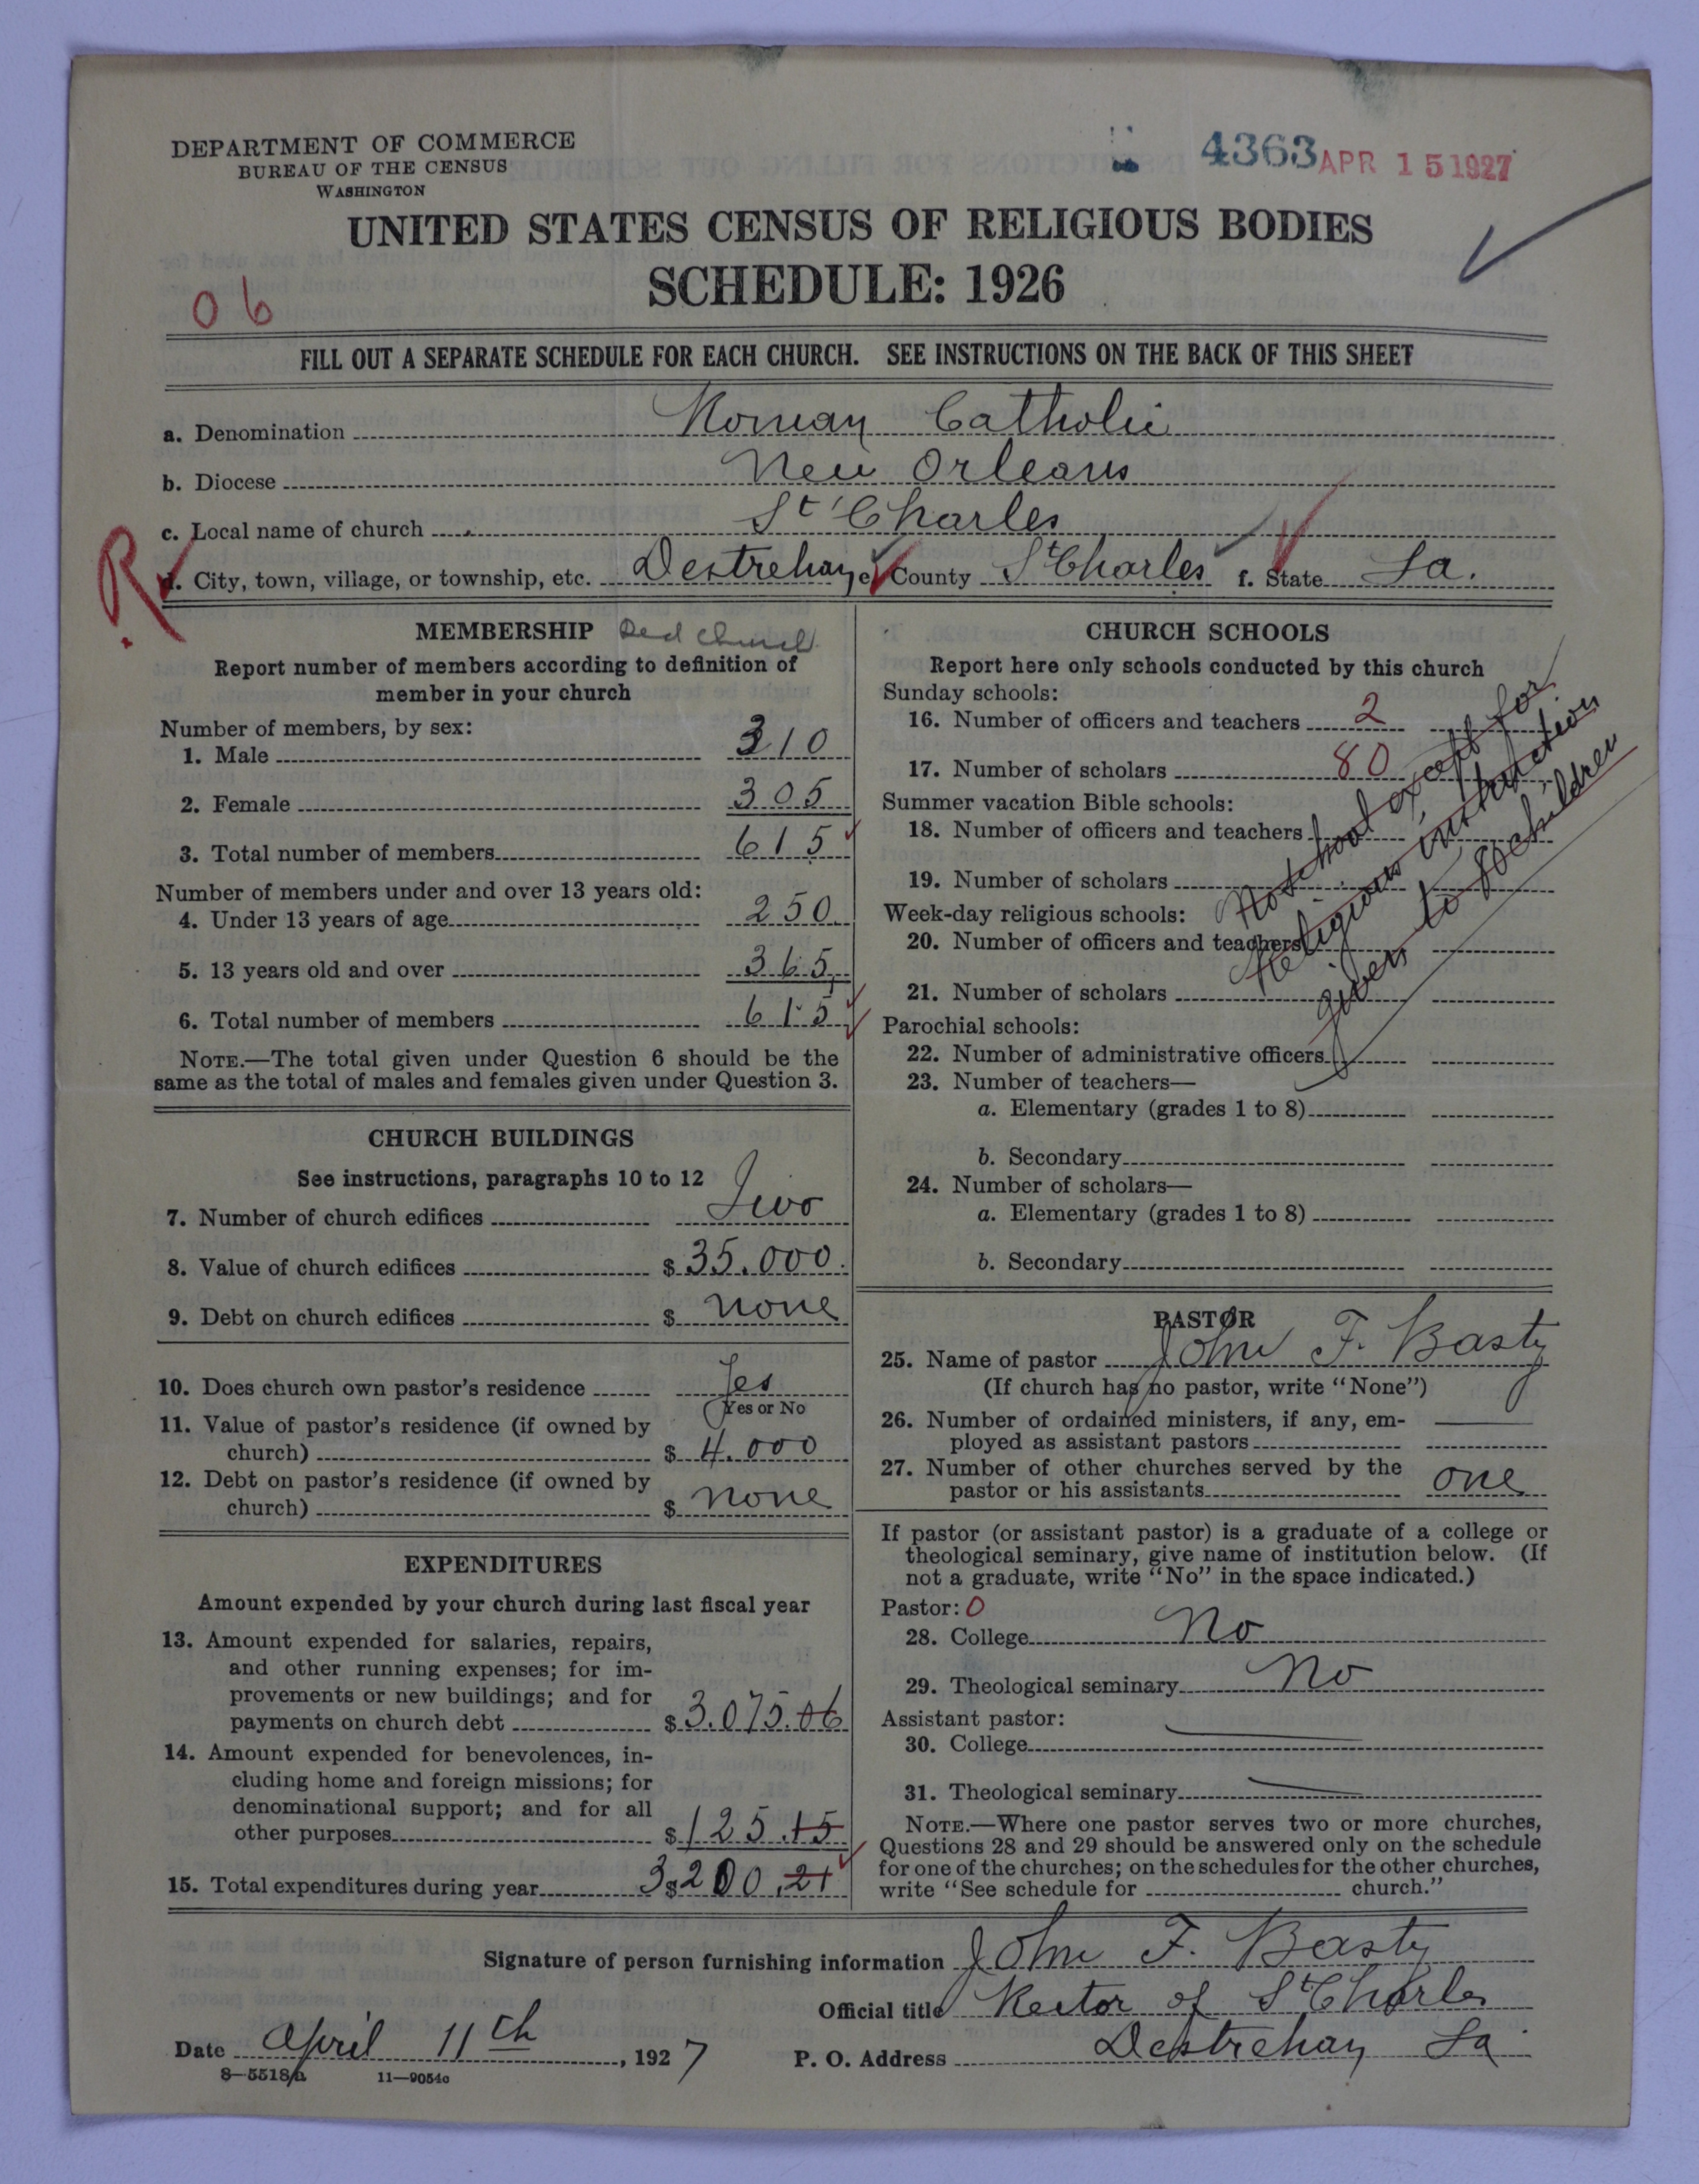 DEPARTMENT OF COMMERCE
BUREAU OF THE CENSUS
WASHINGTON
4363 APR 15 1927
UNITED STATES CENSUS OF RELIGIOUS BODIES
SCHEDULE: 1926
06
FILL OUT A SEPARATE SCHEDULE FOR EACH CHURCH. SEE INSTRUCTIONS ON THE BACK OF THIS SHEET
a. Denomination Roman Catholic
b. Diocese New Orleans
c. Local name of church St Charles
R
d. City, town, village, or township, etc. Destrehan e. County St Charles f. State La.
MEMBERSHIP Red Church
Report number of members according to definition of
member in your church
Number of members, by sex:
1. Male 310
2. Female 305
3. Total number of members 615
Number of members under and over 13 years old:
4. Under 13 years of age 250
5. 13 years old and over 365
6. Total number of members 615
NOTE.—The total given under Question 6 should be the
same as the total of males and females given under Question 3.
CHURCH BUILDINGS
See instructions, paragraphs 10 to 12
7. Number of church edifices Two
8. Value of church edifices $ 35.000.
9. Debt on church edifices $ none
10. Does church own pastor's residence Yes
Yes or No
11. Value of pastor's residence (if owned by
church) $ 4.000
12. Debt on pastor's residence (if owned by
church) $ none
EXPENDITURES
Amount expended by your church during last fiscal year
13. Amount expended for salaries, repairs,
and other running expenses; for im-
provements or new buildings; and for
payments on church debt $ 3.075.06
14. Amount expended for benevolences, in-
cluding home and foreign missions; for
denominational support; and for all
other purposes $ 125.15
15. Total expenditures during year $ 3200.21
CHURCH SCHOOLS
Report here only schools conducted by this church
Sunday schools:
16. Number of officers and teachers 2
17. Number of scholars 80
Summer vacation Bible schools:
18. Number of officers and teachers
19. Number of scholars
Week-day religious schools:
20. Number of officers and teachers
21. Number of scholars
No school except for
Religious instruction
given to 80 children
Parochial schools:
22. Number of administrative officers
23. Number of teachers—
a. Elementary (grades 1 to 8)
b. Secondary
24. Number of scholars—
a. Elementary (grades 1 to 8)
b. Secondary
PASTOR
25. Name of pastor John F. Basty
(If church has no pastor, write "None")
26. Number of ordained ministers, if any, em-
ployed as assistant pastors
27. Number of other churches served by the
pastor or his assistants one
If pastor (or assistant pastor) is a graduate of a college or
theological seminary, give name of institution below. (If
not a graduate, write "No" in the space indicated.)
Pastor: 0
28. College No
29. Theological seminary No
Assistant pastor:
30. College
31. Theological seminary
NOTE.—Where one pastor serves two or more churches,
Questions 28 and 29 should be answered only on the schedule
for one of the churches; on the schedules for the other churches,
write "See schedule for church."
Signature of person furnishing information John F. Basty
Official title Rector of St Charles
Date April 11th, 1927 P. O. Address Destrehan La
8—5518a 11—9054c